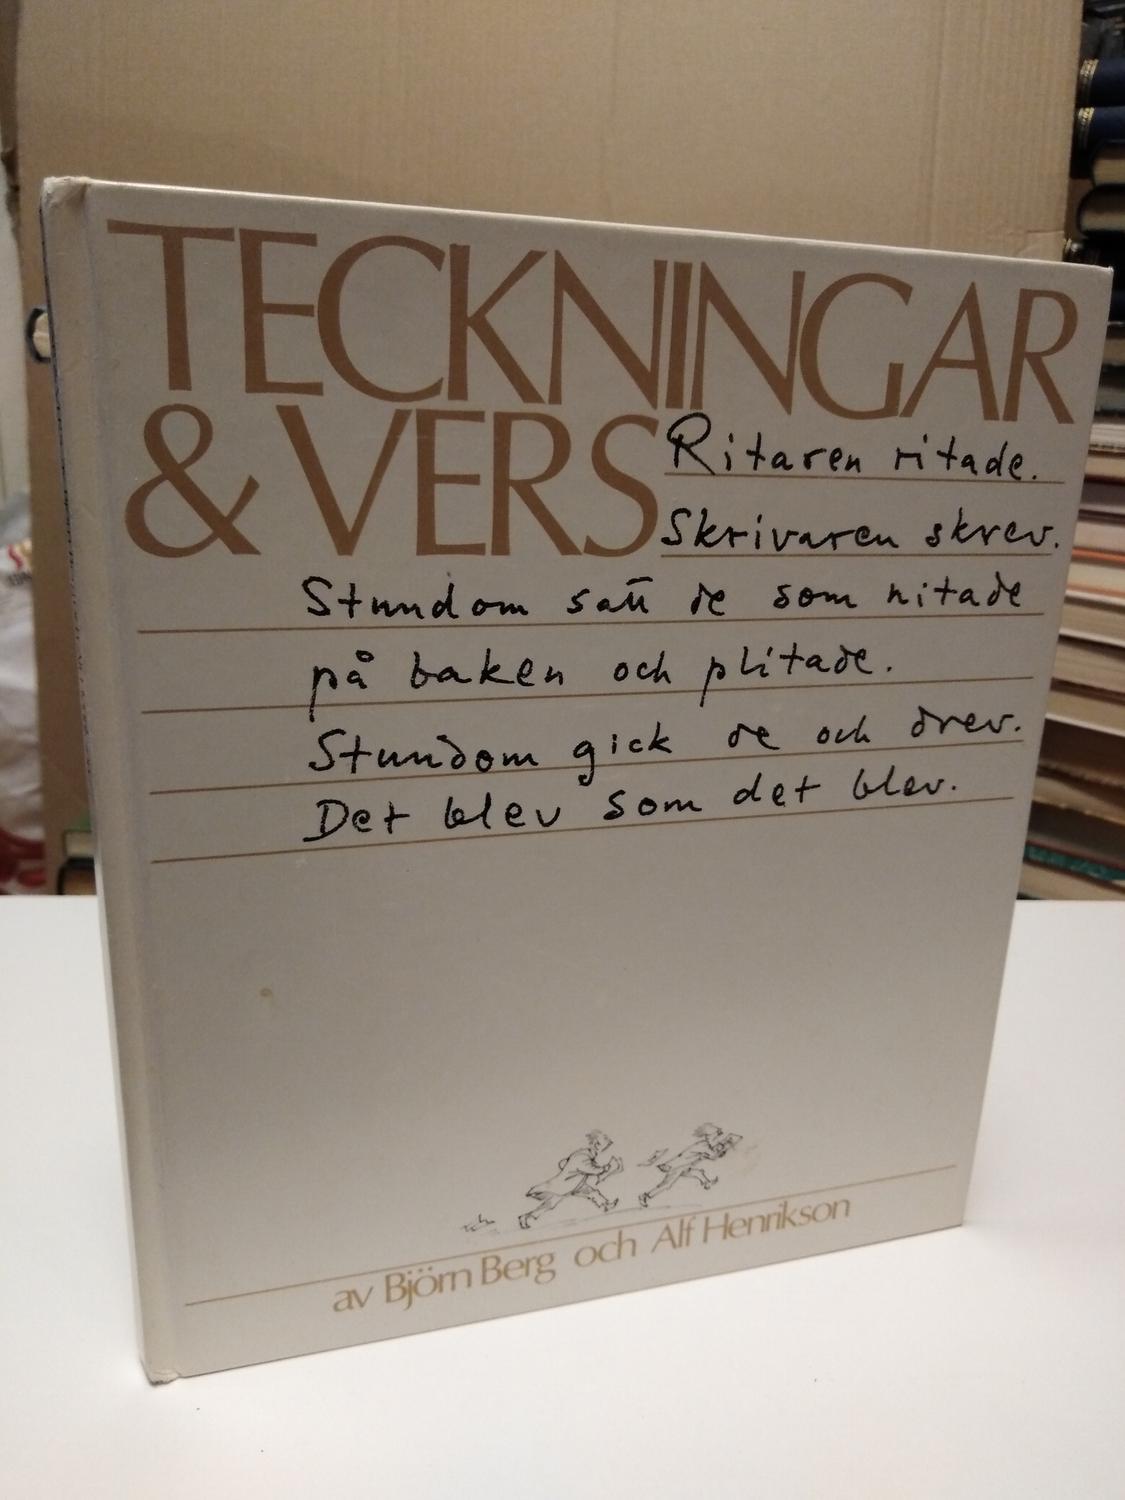 TECKNINGAR
& VERS
Ritaren ritade.
Skrivaren skrev.
Stundom satt de som nitade
på baken och plitade.
Stundom gick de och drev.
Det blev som det blev.
av Björn Berg och Alf Henrikson